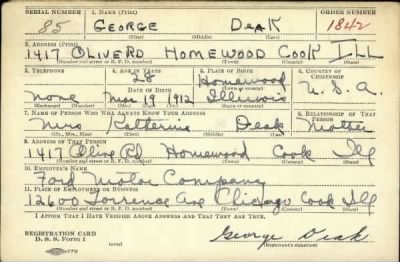 SERIAL NUMBER 1. NAME (Print) ORDER NUMBER
85 GEORGE DEAK 1842
(First) (Middle) (Last)
2. ADDRESS (Print)
1417 OLIVE RD HOMEWOOD COOK ILL
(Number and street or R. F. D. number) (Town) (County) (State)
3. TELEPHONE 4. AGE IN YEARS 5. PLACE OF BIRTH 6. COUNTRY OF CITIZENSHIP
28 Homewood
None DATE OF BIRTH (Town or county) U. S. A.
Mar 19 1912 Illinois
(Exchange) (Number) (Mo.) (Day) (Yr.) (State or country)
7. NAME OF PERSON WHO WILL ALWAYS KNOW YOUR ADDRESS 8. RELATIONSHIP OF THAT PERSON
Mrs Katherine Deak Mother
(Mr., Mrs., Miss) (First) (Middle) (Last)
9. ADDRESS OF THAT PERSON
1417 Olive Rd Homewood Cook Ill
(Number and street or R. F. D. number) (Town) (County) (State)
10. EMPLOYER'S NAME
Ford Motor Company
11. PLACE OF EMPLOYMENT OR BUSINESS
12600 Torrence Ave Chicago Cook Ill
(Number and street or R. F. D. number) (Town) (County) (State)
I AFFIRM THAT I HAVE VERIFIED ABOVE ANSWERS AND THAT THEY ARE TRUE.
REGISTRATION CARD
D. S. S. Form 1 George Deak
(Registrant's signature)